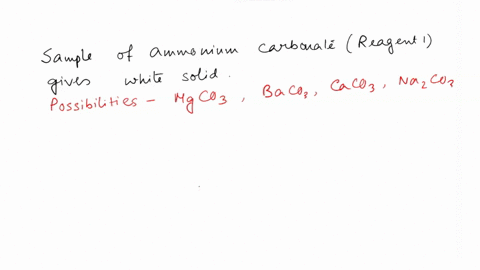 Sample of ammonium carbonate (Reagent 1)
gives white solid.
Possibilities - MgCO3, BaCO3, CaCO3, Na2CO3